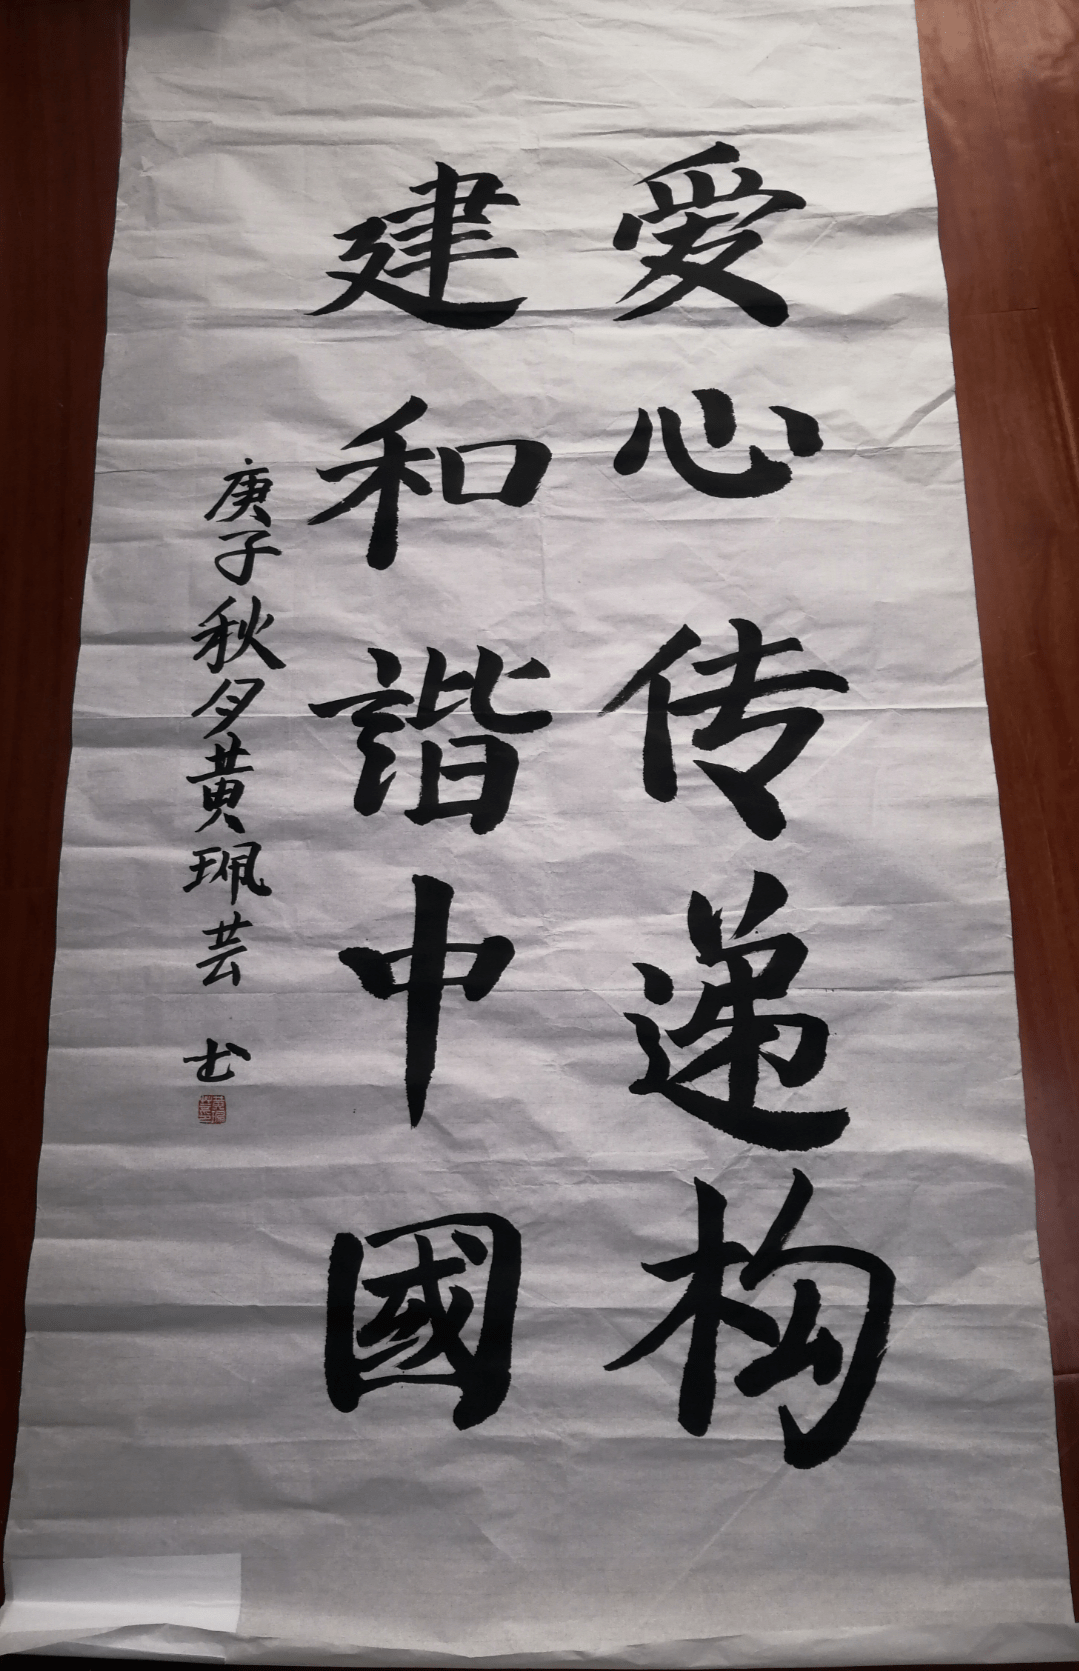 爱心传递构
建和諧中國
庚子秋夕黄珮芸 书